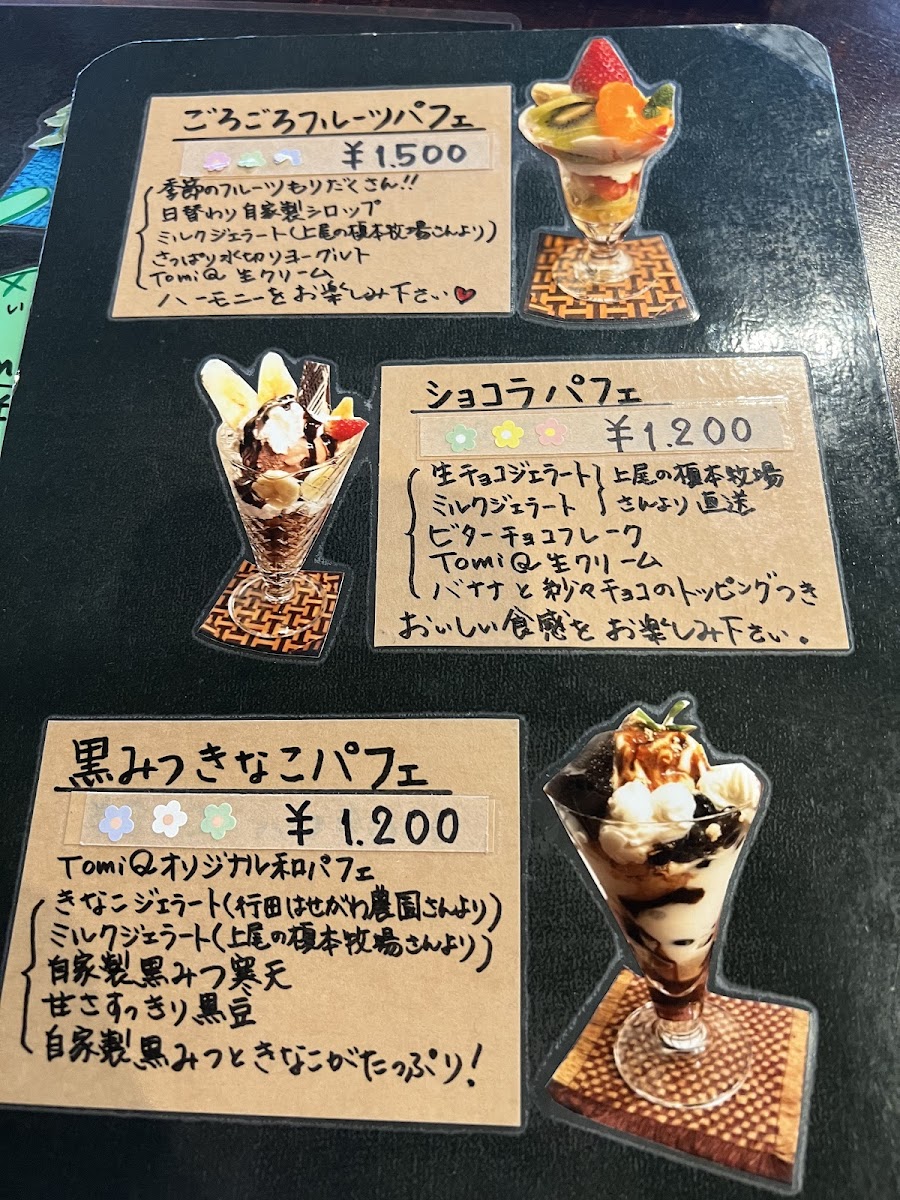 ごろごろフルーツパフェ
¥1.500
季節のフルーツもりだくさん!!
日替わり自家製シロップ
ミルクジェラート(上尾の榎本牧場さんより)
さっぱり水切りヨーグルト
TomiQ 生クリーム
ハーモニーをお楽しみ下さい♥
ショコラパフェ
¥1.200
生チョコジェラート
ミルクジェラート
上尾の榎本牧場
さんより直送
ビターチョコフレーク
TomiQ 生クリーム
バナナと チョコのトッピングつき
おいしい食感をお楽しみ下さい。
黒みつきなこパフェ
¥1.200
TomiQオリジナル和パフェ
きなこジェラート(行田はせがわ農園さんより)
ミルクジェラート(上尾の榎本牧場さんより)
自家製黒みつ寒天
甘さすっきり黒豆
自家製黒みつときなこがたっぷり!
い